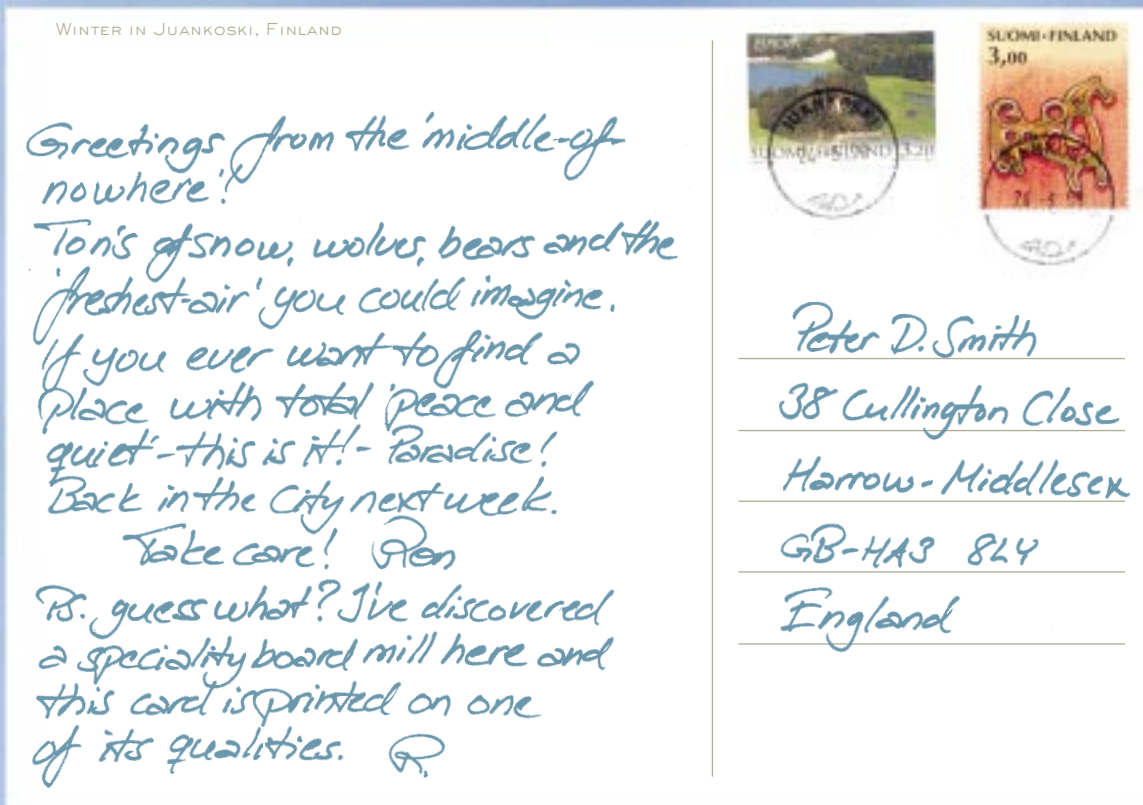 WINTER IN JUANKOSKI, FINLAND
Greetings from the 'middle-of-
nowhere'!
Ton's of snow, wolves, bears and the
'freshest-air' you could imagine.
If you ever want to find a
place with total 'peace and
quiet' - this is it! - Paradise!
Back in the City next week.
Take care! Ron
PS. guess what? I've discovered
a speciality board mill here and
this card is printed on one
of its qualities. R.
EUROPA
JUANKOSKI
SUOMI FINLAND 3,20
SUOMI-FINLAND
3,00
Peter D. Smith
38 Cullington Close
Harrow - Middlesex
GB-HA3 8LY
England